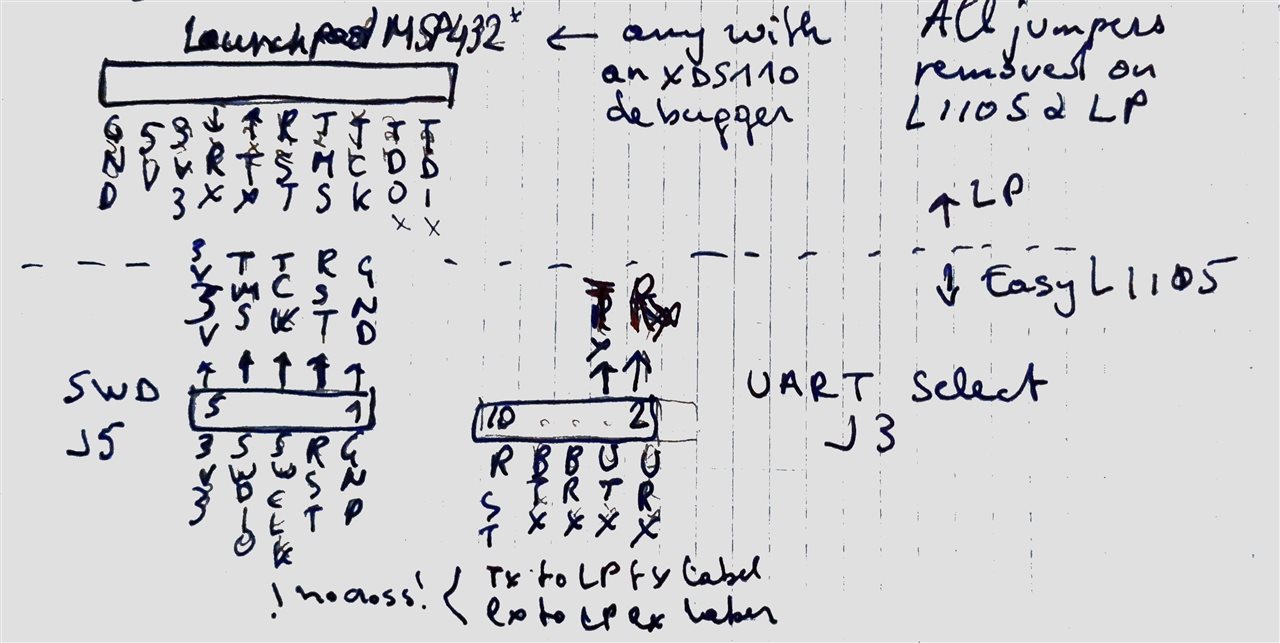 Launchpad MSP432* ← any with
an XDS110
debugger
All jumpers
removed on
L1105 & LP
GND 5V 3V3 ↓RX ↑TX RST TMS TCK TDO TDI
x x
↑ LP
↓ Easy L1105
3V3V TMS TCK RST GND
SWD
J5
5 1
3V3 SWDIO SWCLK RST GND
TX RX
10 . . . 2
RST BTX BRX UTX URX
UART Select
J3
! no cross! < Tx to LP tx label
Rx to LP Rx label